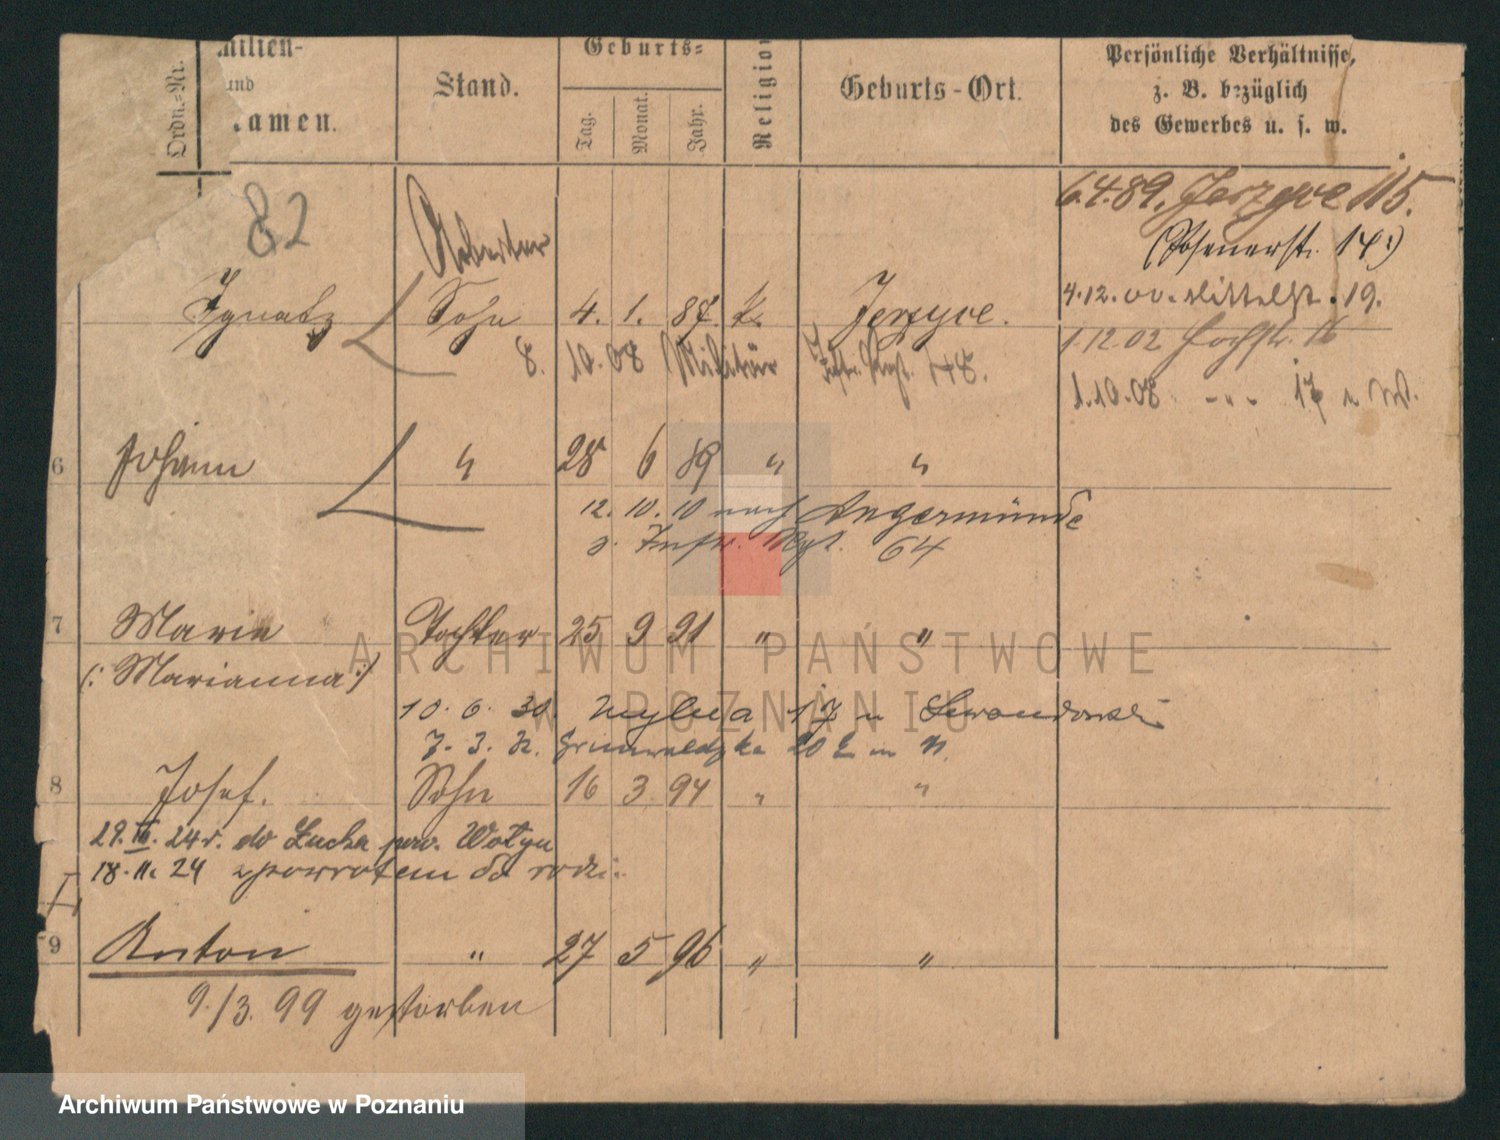 Ordn.-Nr.
milien-
und
namen.
Stand.
Geburts-
Tag.
Monat.
Jahr.
Religion
Geburts-Ort.
Persönliche Verhältnisse,
z. B. bezüglich
des Gewerbes u. s. w.
82
6.4.89. Jerzyce 115.
Arbeiter
(Posenerst. 14:)
4.12. Mittelst. 19.
Ignatz Sohn 4. 1. 87. k. Jerzyce.
1.12.02 Hochstr. 16
8. 10. 08 Militär Inftr. Rgt. 148.
1.10.08 - - - 17
6 Johann " 28 6 89 " "
12. 10. 10 nach Angermünde
z. Inftr. Rgt. 64
7 Marie Tochter 25 9 91 " "
(: Marianna :)
10. 6. 30. Mylna 17 u Lewandowski
7. 3. 32. Grunwaldzka 20
8 Josef. Sohn 16 3 94 " "
24 r. do Łucka pow. Wołyn
18. 11. 24 z powrotem do rodz.
9 Anton " 27 5 96 " "
9./3. 99 gestorben
ARCHIWUM PAŃSTWOWE
W POZNANIU
Archiwum Państwowe w Poznaniu